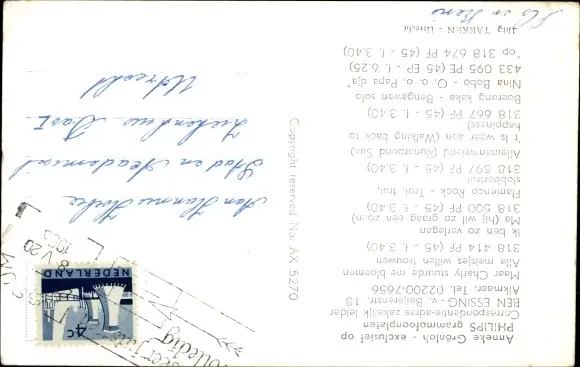 Anneke Grönloh - exclusief op
PHILIPS grammofoonplaten
Correspondentie-adres zakelijk leider
BEN ESSING - v. Beijerenstr. 18
Alkmaar. Tel. 02200-7656
Maar Charly stuurde me bloemen
Alle meisjes willen
318 414 PF (45 - f. 3.40)
Ik ben zo verlegen
Ma (hij wil zo graag een zoen)
318 500 PF (45 - f. 3.40)
Flamenco Rock - Trul, trul,
slobbertrul
318 597 PF (45 - f. 3.40)
Allemansvriend (Runaround Sue)
't Is weer aan (Walking back to
happiness)
318 667 PF (45 - f. 3.40)
Boerong kaka - Bengawan solo
Nina Bobo - O, o, o, Papa dja"
433 095 PE (45 EP - f. 6.25)
"op 318 674 PF (45 - f. 3.40)
TAKKEN - Utrecht
Copyright reserved No. AX 5270
Aan Hannie
Stad en Academisch
Ziekenhuis
Utrecht
8 V 20
1963
volledig
4c
NEDERLAND